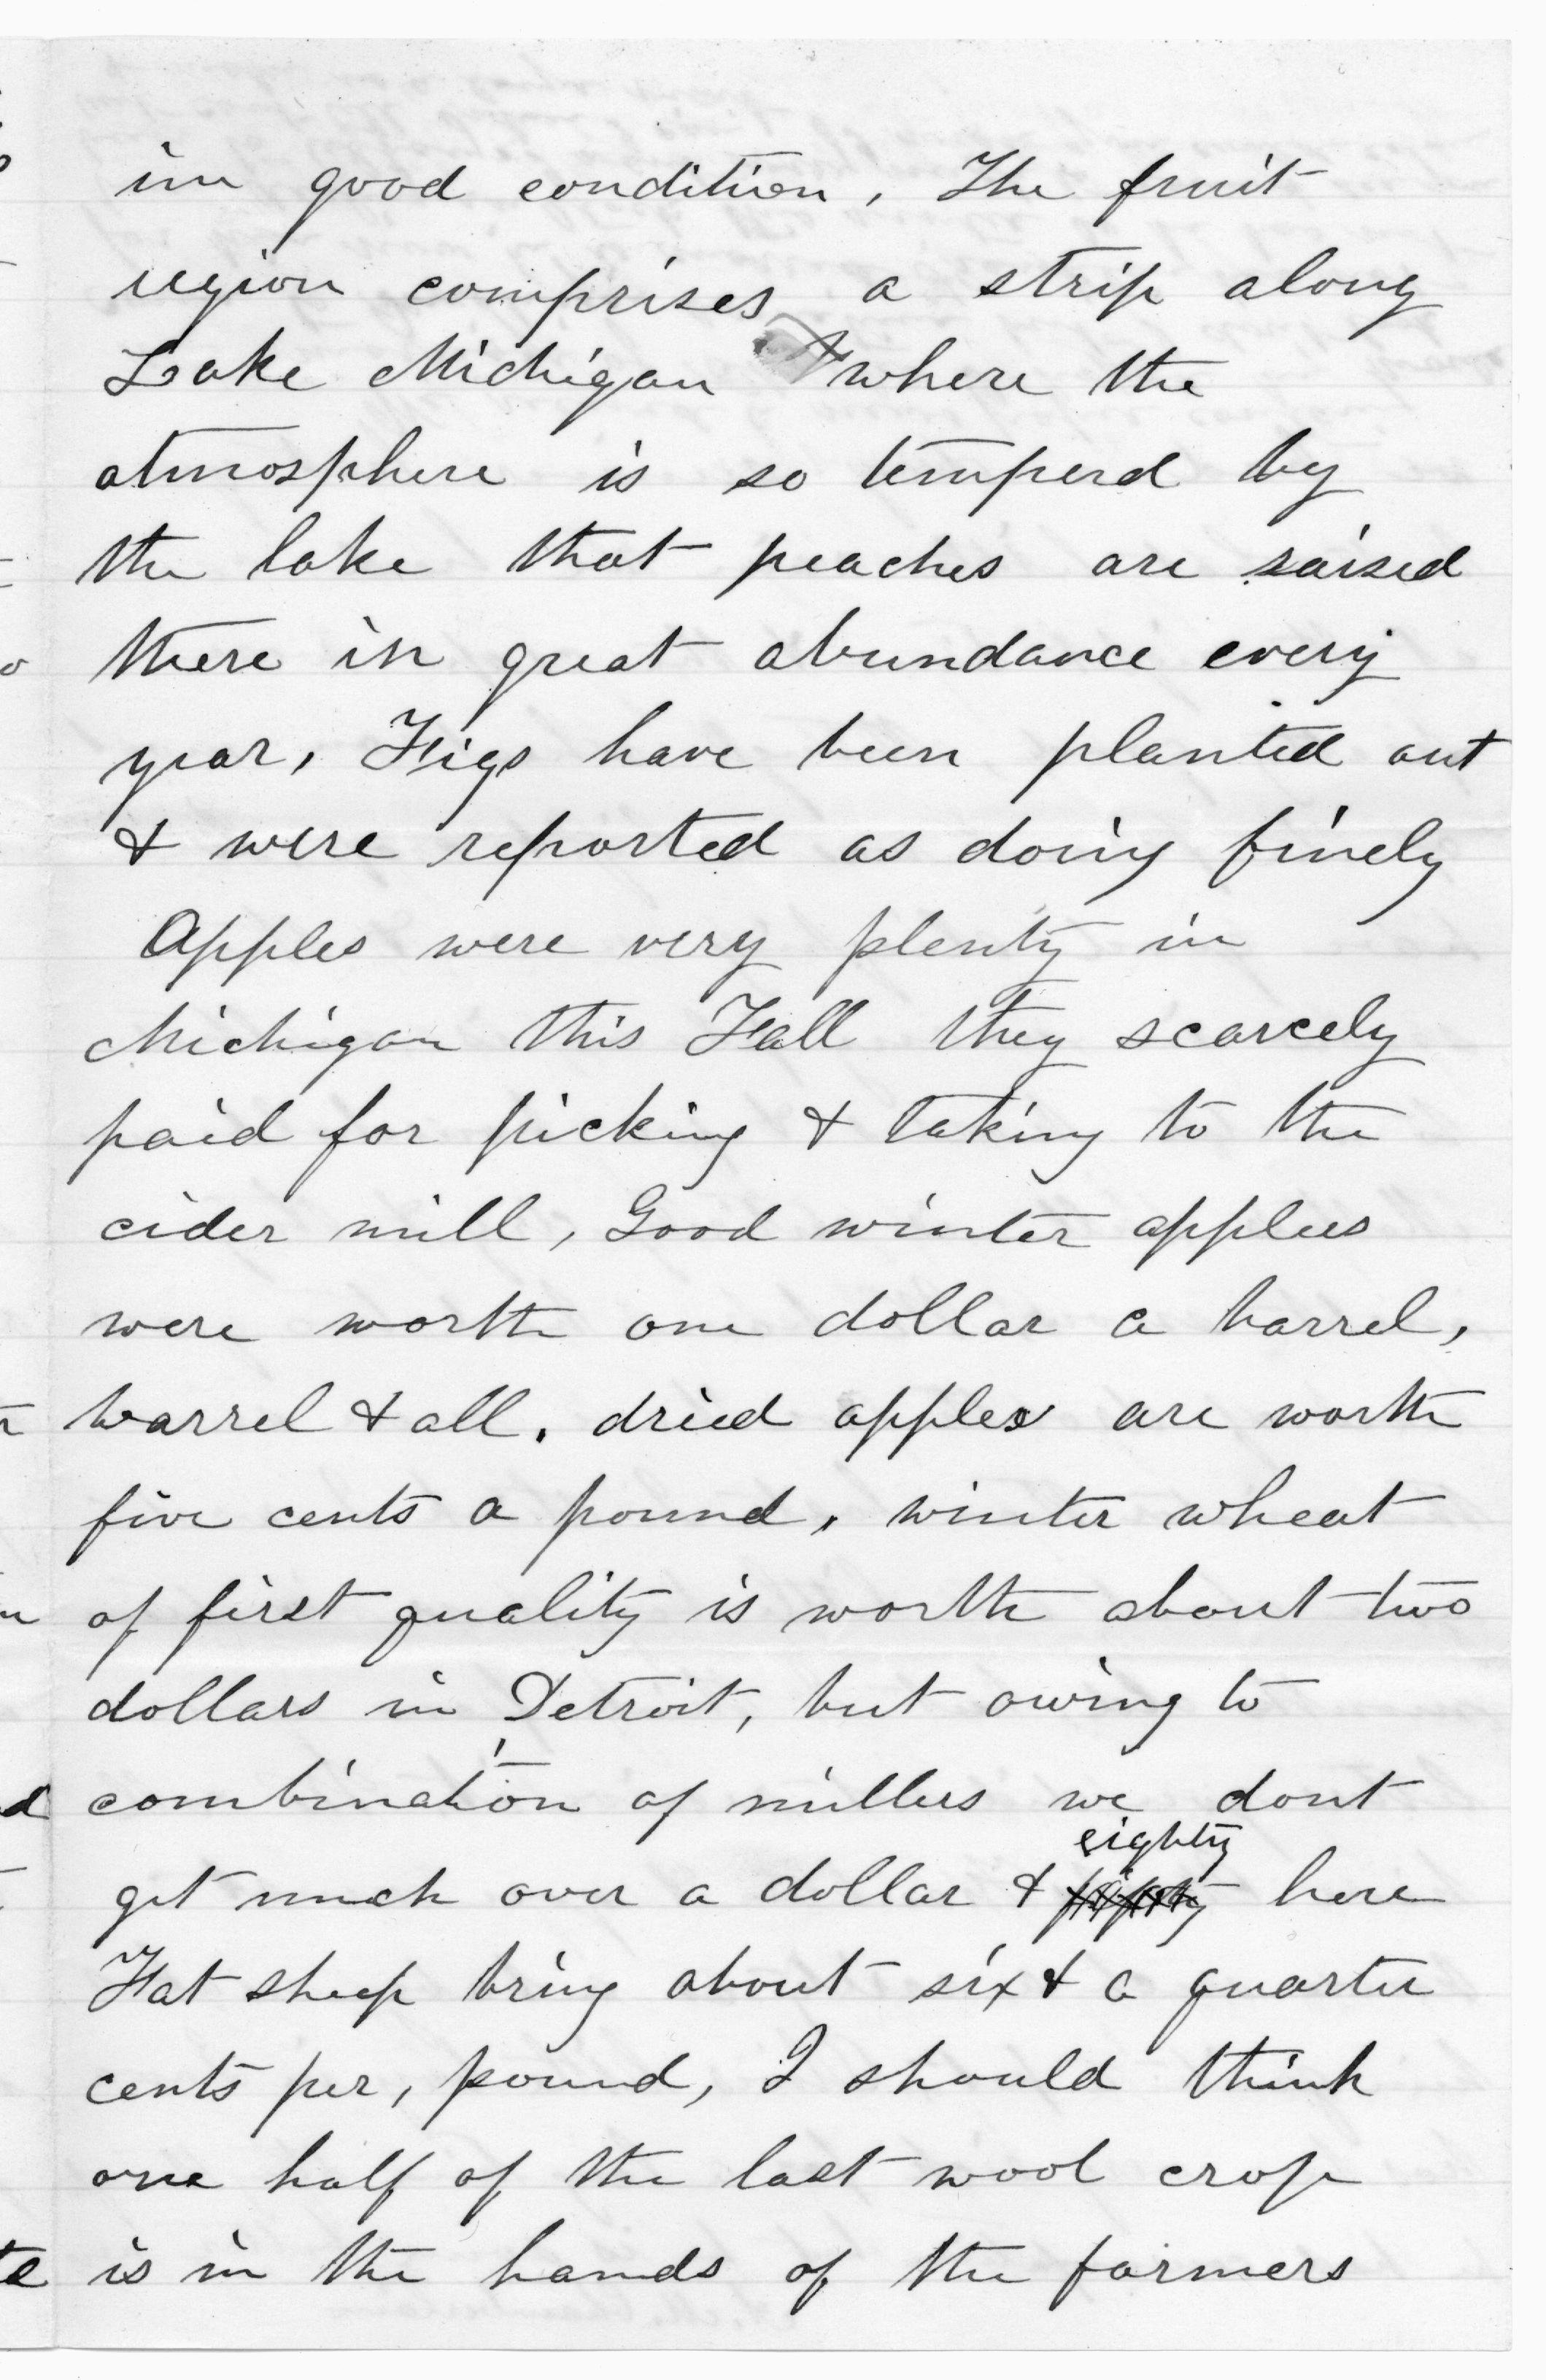 in good condition, The fruit
region comprises a strip along
Lake Michigan where the
atmosphere is so temperd by
the lake that peaches are raised
there in great abundance every
year, Figs have been planted out
& were reported as doing finely
Apples were very plenty in
Michigan this Fall they scarcely
paid for picking & taking to the
cider mill, Good winter apples
were worth one dollar a barrel,
barrel & all. dried apples are worth
five cents a pound. winter wheat
of first quality is worth about two
dollars in Detroit, but owing to
combination of millers we dont
eighty
get much over a dollar & fifty here
Fat sheep bring about six & a quarter
cents per, pound, I should think
one half of the last wool crop
is in the hands of the farmers